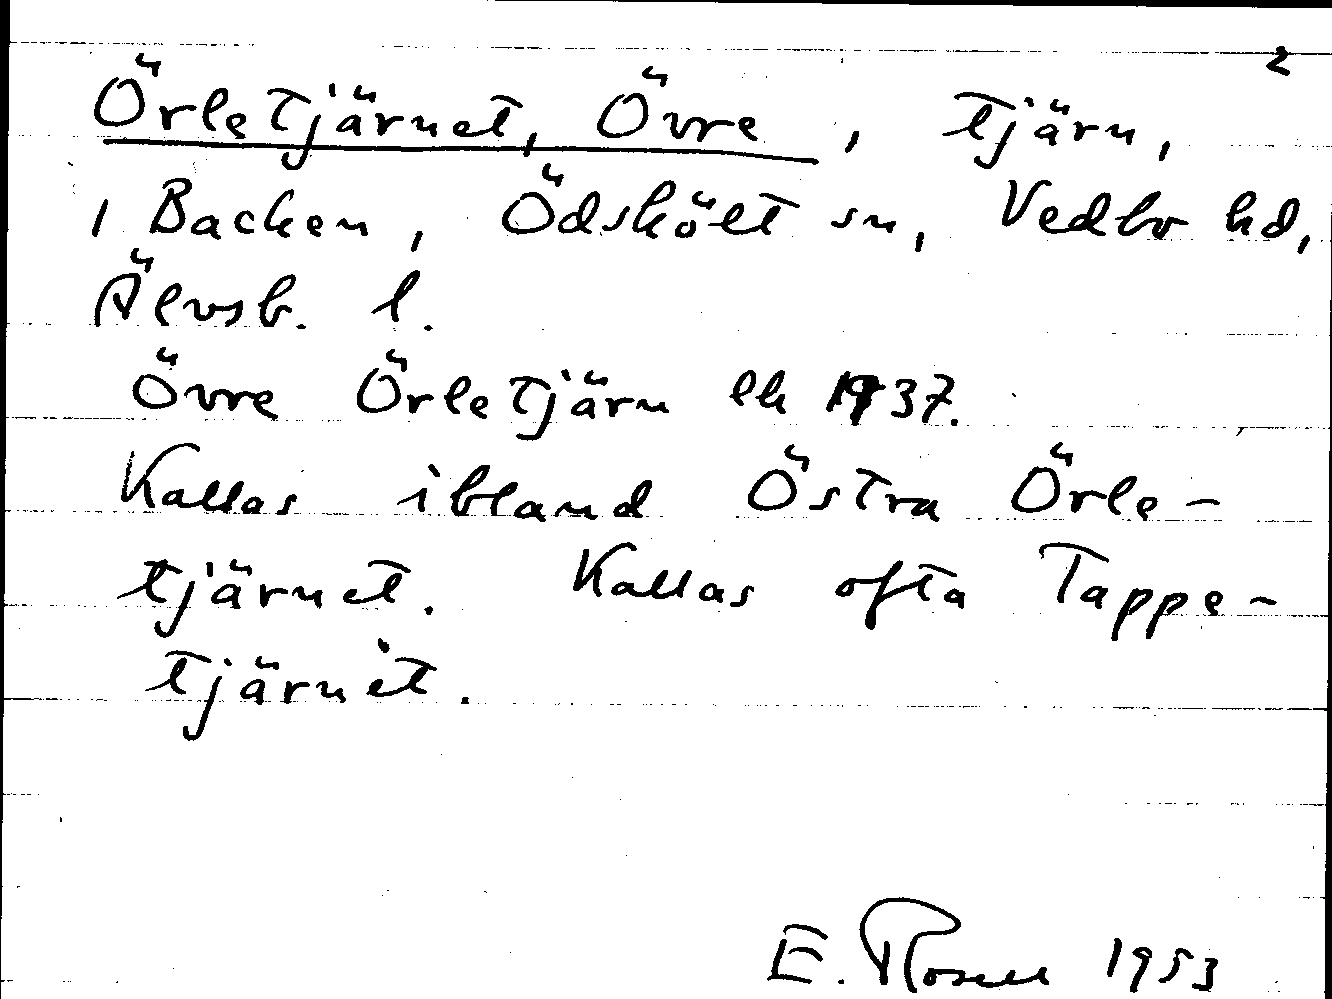 2
Örletjärnet, Övre, tjärn,
1 Backen, Ödskölt sn, Vedbo hd,
Älvsb. l.
Övre Örletjärn ek 1937.
Kallas ibland Östra Örle-
tjärnet. Kallas ofta Tappe-
tjärnet.
E. Rosell 1953